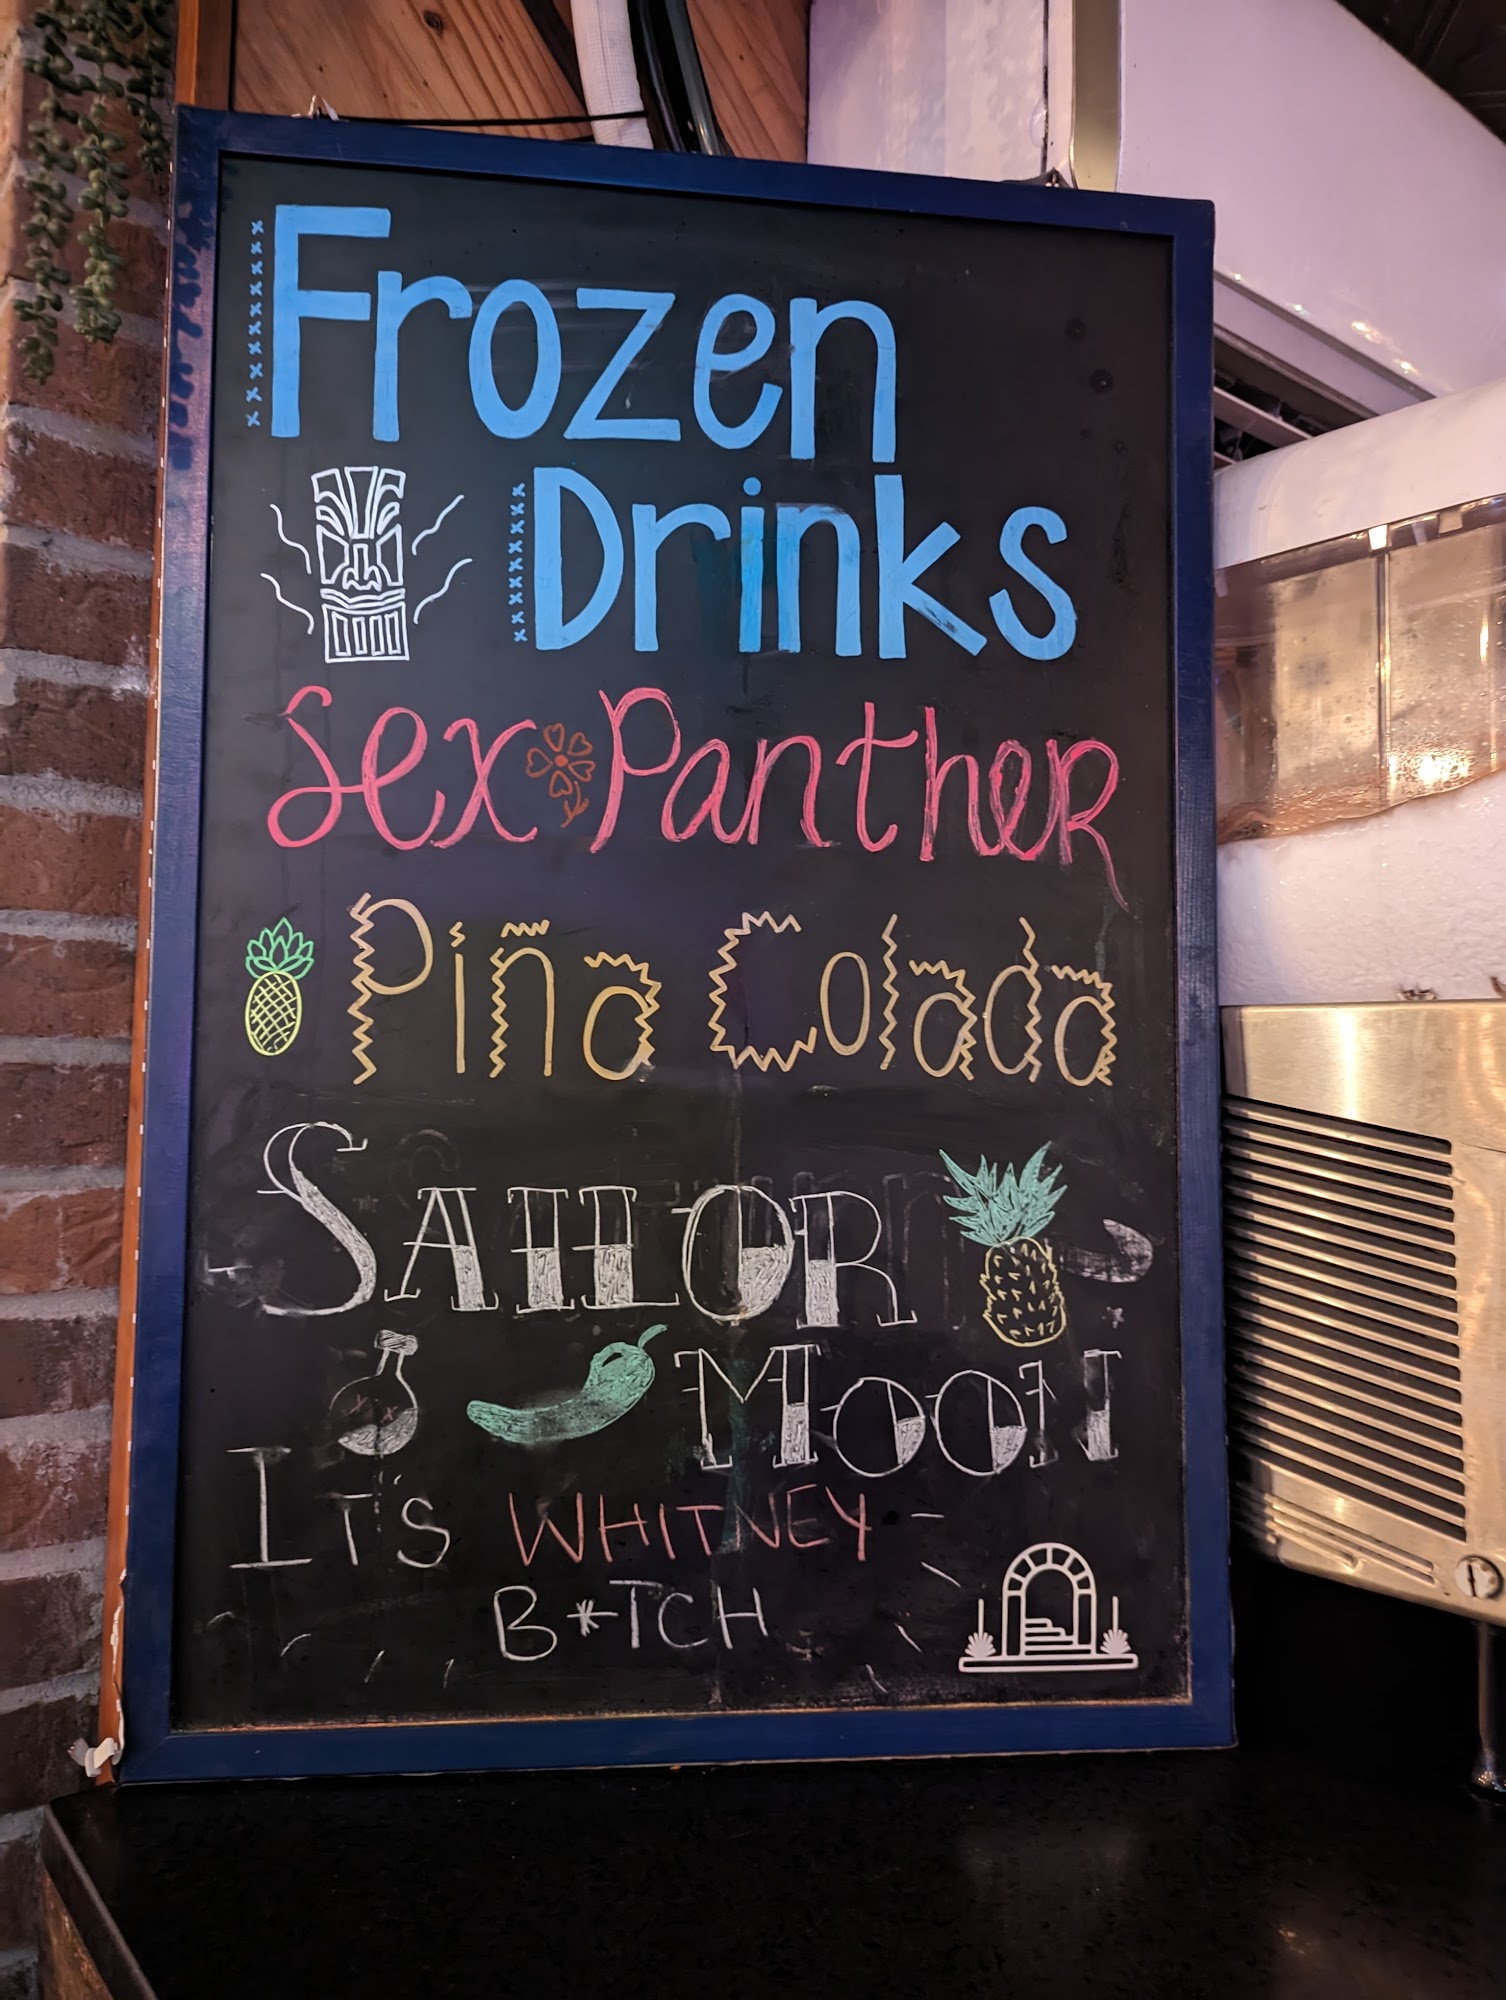 Frozen
Drinks
Sex Panther
Piña Colada
SAILOR
MOON
IT'S WHITNEY
B*TCH